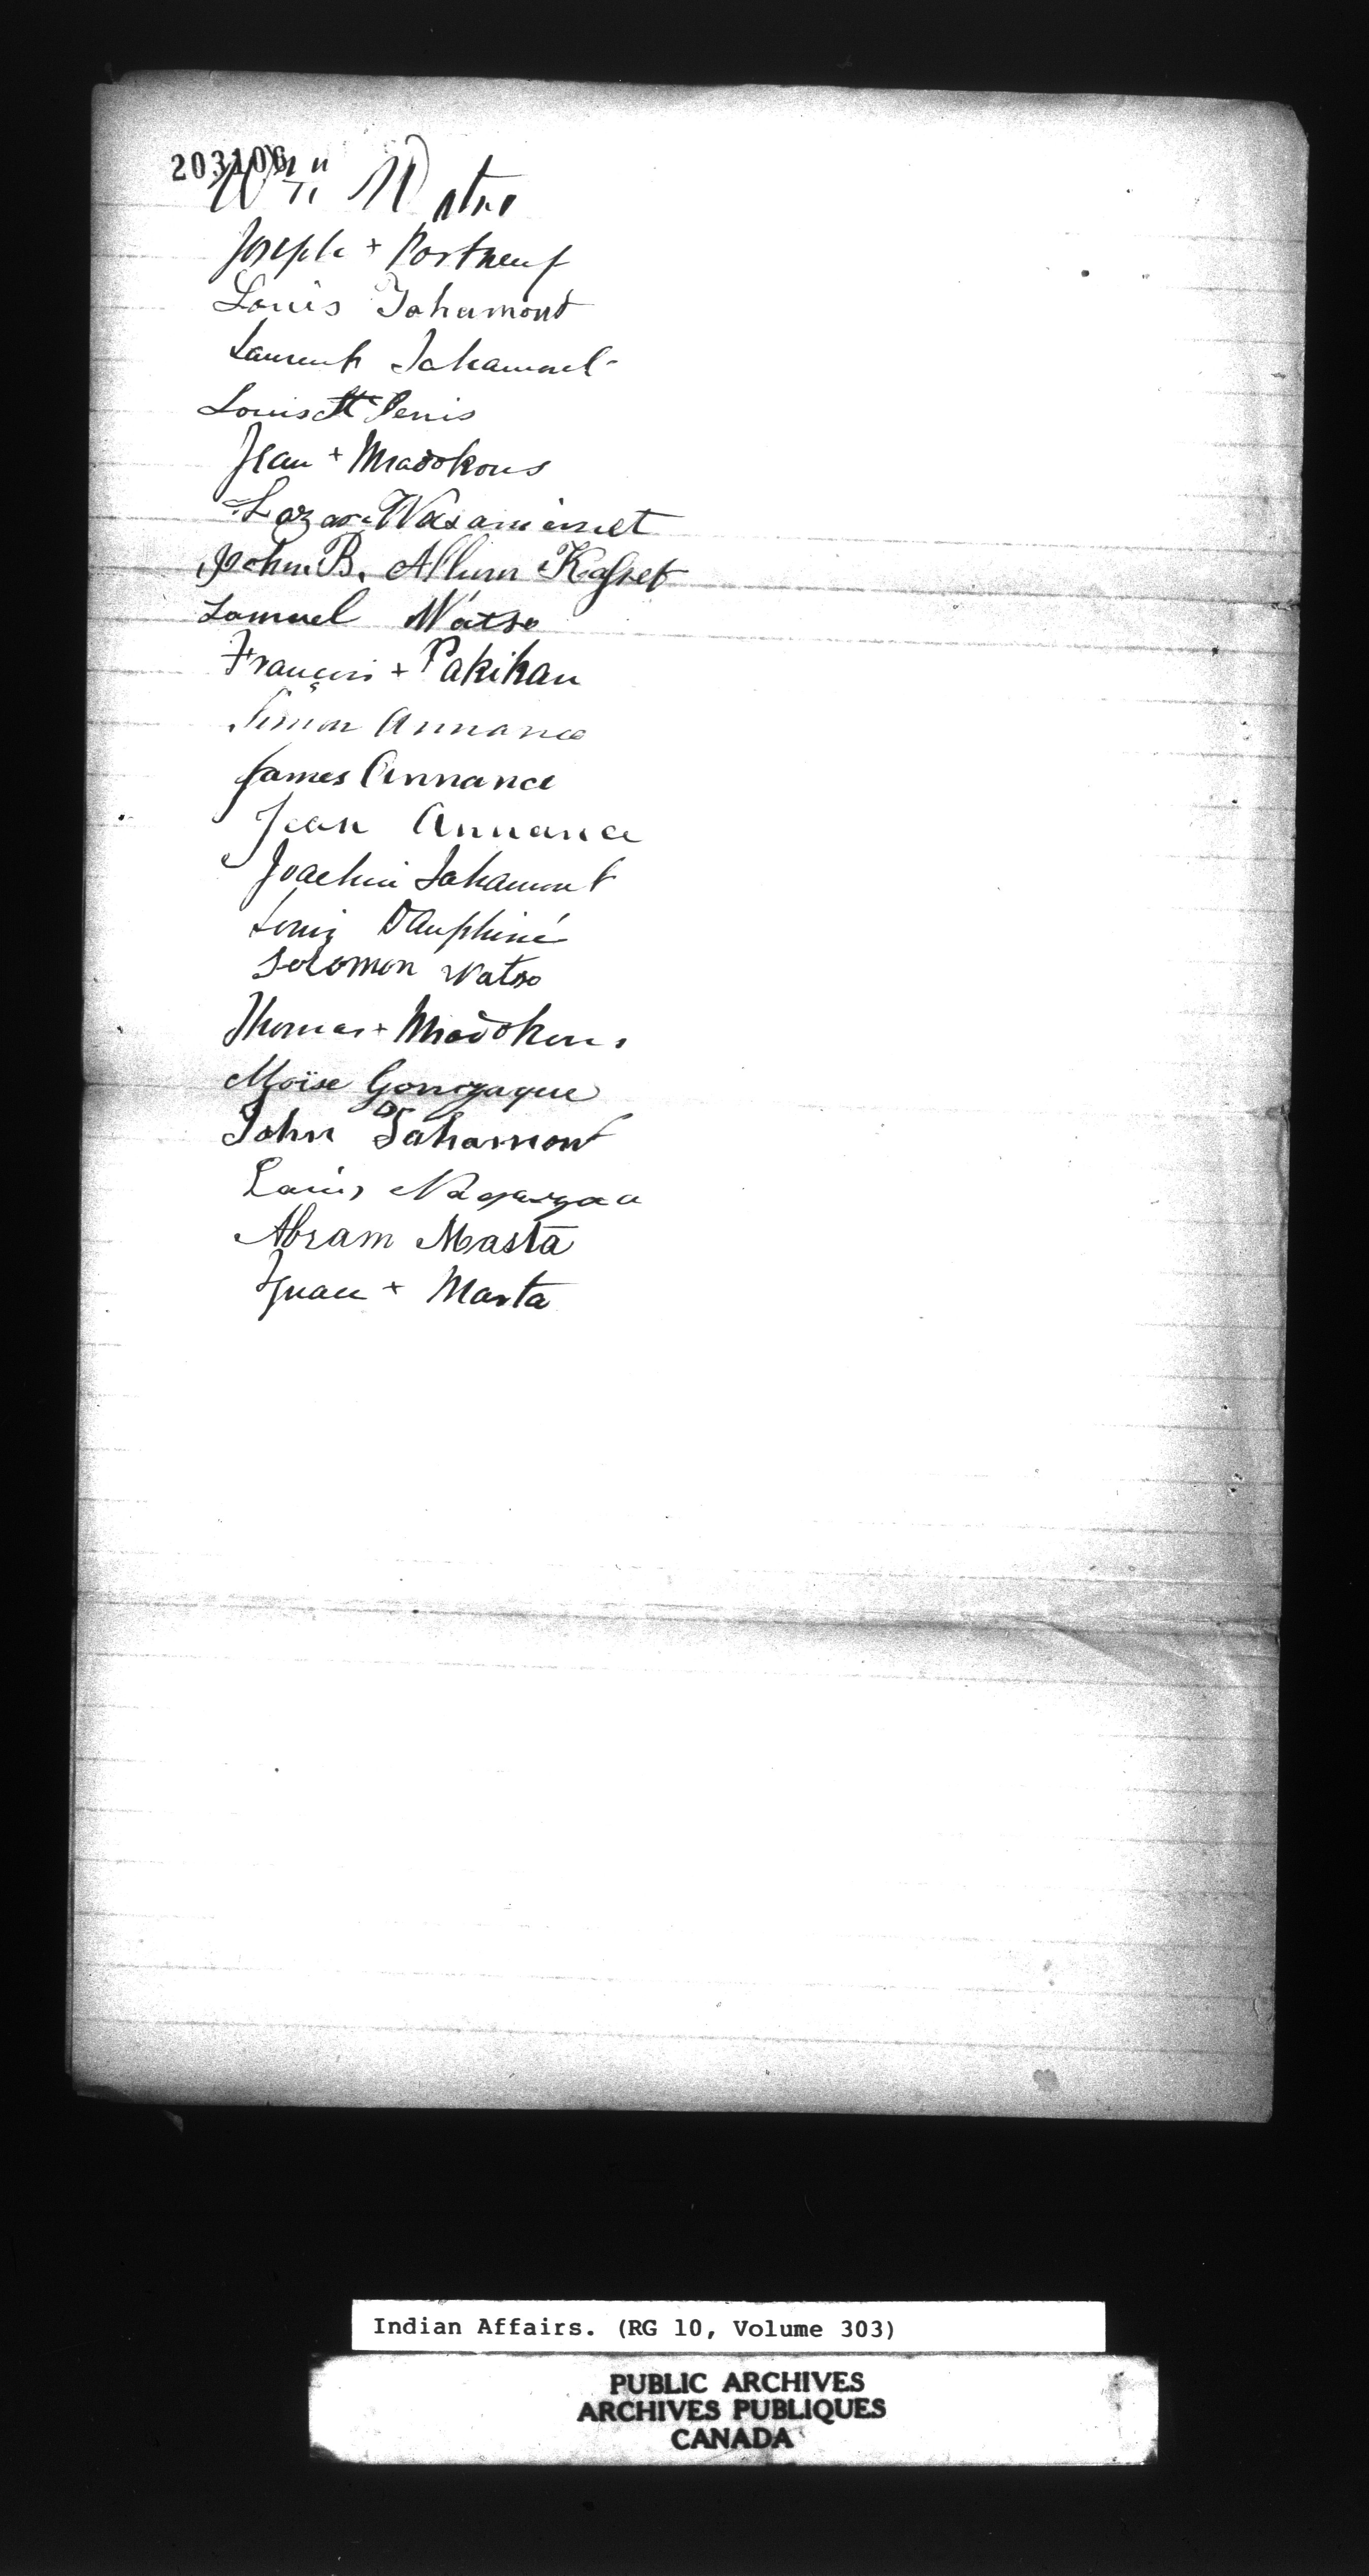 203106
Wm Watso
Joseph + Portneuf
Louis Tahamont
Laurent Tahamont
Louis St Denis
Jean + Msadokous
Lazare Wasaminet
John B. Allum Kasset
Samuel Watso
François + Pakikan
Simon Annance
James Annance
Jean Annance
Joachim Tahamont
Louis Dauphiné
Solomon Watso
Thomas + Msadokous
Moïse Gonzague
John Tahamont
Louis
Abram Masta
Ignace + Masta
Indian Affairs. (RG 10, Volume 303)
PUBLIC ARCHIVES
ARCHIVES PUBLIQUES
CANADA